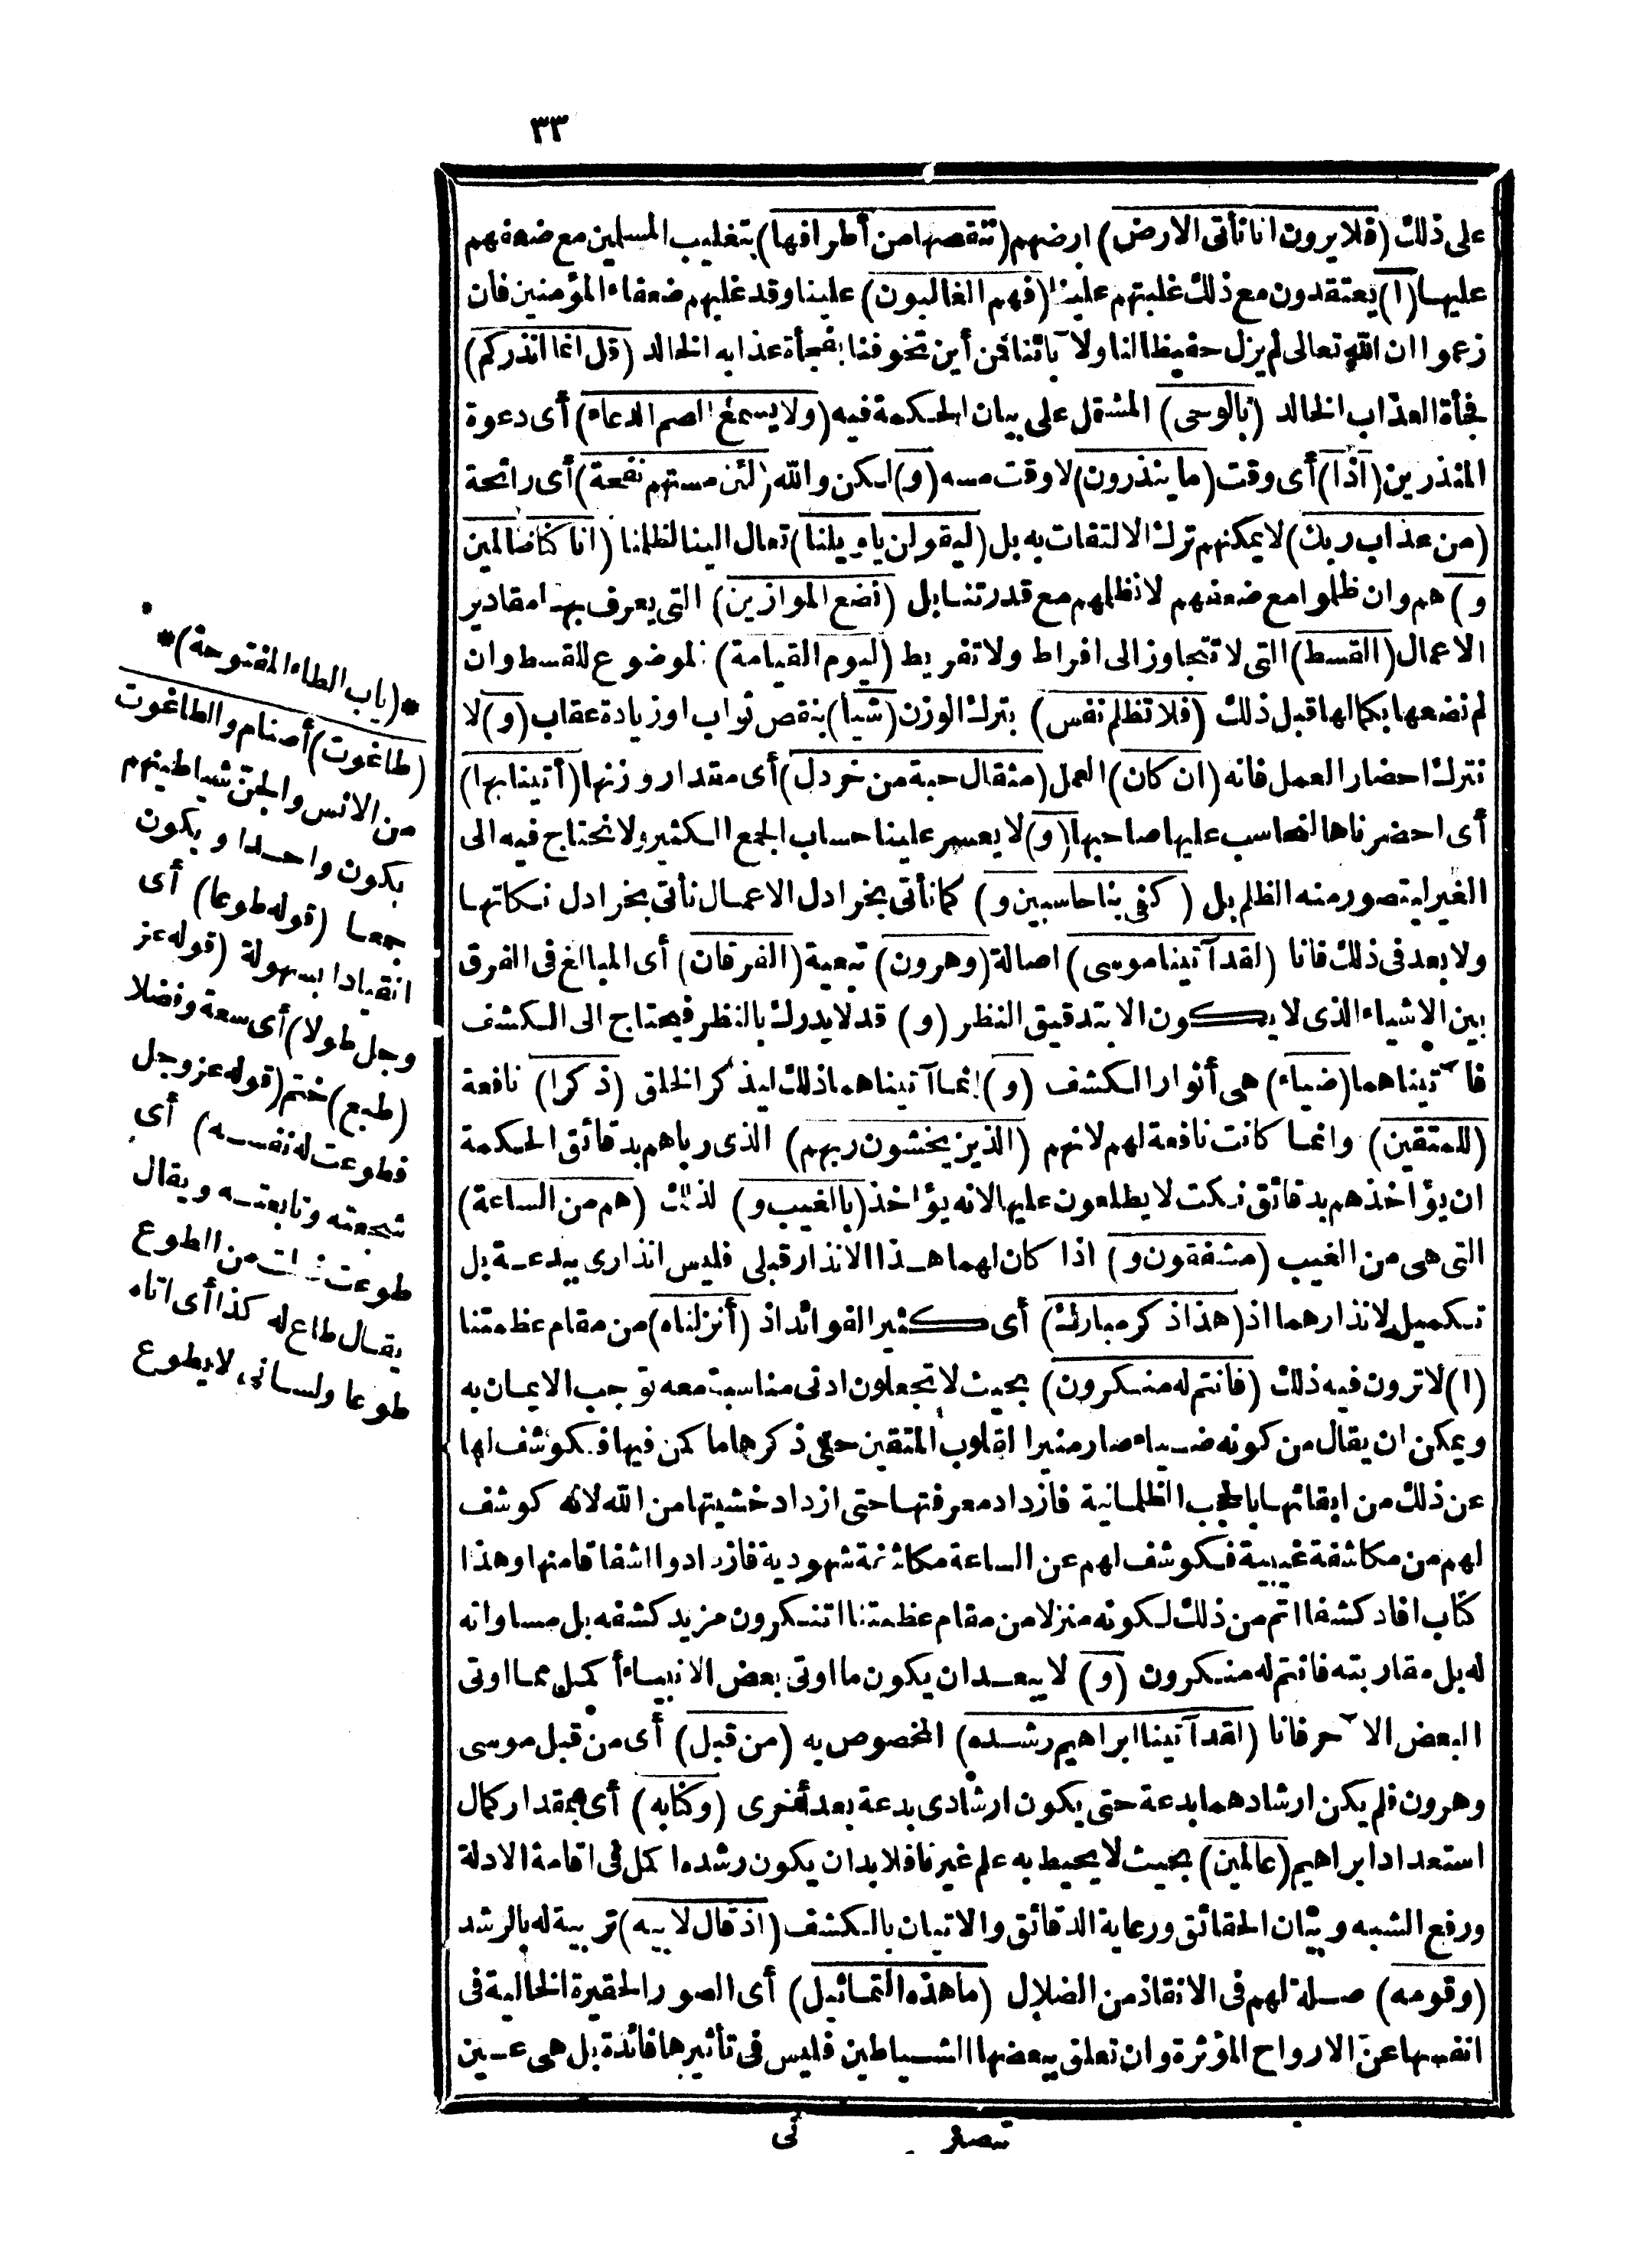 ٣٣
على ذلك (فلا يرون انا نأتى الارض) ارضهم (ننقصها من أطرافها) بتغليب المسلمين مع ضعفهم
عليها (ا) يعتقدون مع ذلك غلبتهم علينا (فهم الغالبون) علينا وقد غلبهم ضعفاء المؤمنين فان
زعموا ان الله تعالى لم يزل حفيظا لنا ولآبائنا فمن أين تخوفنا بفجأة عذابه الخالد (قل انما انذركم)
فجأة العذاب الخالد (بالوحى) المشتمل على بيان الحكمة فيه (ولا يسمع الصم الدعاء) أى دعوة
المنذرين (اذا) أى وقت (ما ينذرون) لا وقت مسه (و) لكن والله (لئن مستهم نفحة) أى رائحة
(من عذاب ربك) لا يمكنهم ترك الالتفات به بل (ليقولن ياويلنا) تعال الينا لظلمنا (انا كنا ظالمين
و) هم وان ظلموا مع ضعفهم لا نظلمهم مع قدرتنا بل (نضع الموازين) التى يعرف بها مقادير
الاعمال (القسط) التى لا تتجاوز الى افراط ولا تفريط (ليوم القيامة) الموضوع للقسط وان
لم نضعها بكمالها قبل ذلك (فلا تظلم نفس) بترك الوزن (شيأ) بنقص ثواب او زيادة عقاب (و) لا
نترك احضار العمل فانه (ان كان) العمل (مثقال حبة من خردل) أى مقدار وزنها (أتينا بها)
أى احضرناها لنحاسب عليها صاحبها (و) لا يعسر علينا حساب الجمع الكثير ولا نحتاج فيه الى
الغير ليتصور منه الظلم بل (كفى بنا حاسبين و) كما نأتى بخرادل الاعمال نأتى بخرادل نكاتها
ولا بعد فى ذلك فانا (لقد آتينا موسى) اصالة (وهرون) تبعية (الفرقان) أى المبالغ فى الفرق
بين الاشياء الذى لا يكون الا بتدقيق النظر (و) قد لا يدرك بالنظر فيحتاج الى الكشف
فآتيناهما (ضياء) هى أنوار الكشف (و) انما آتيناهما ذلك ليذكر الخلق (ذكرا) نافعة
(للمتقين) وانما كانت نافعة لهم لانهم (الذين يخشون ربهم) الذى رباهم بدقائق الحكمة
ان يؤاخذهم بدقائق نكت لا يطلعون عليها لانه يؤاخذ (بالغيب و) لذلك (هم من الساعة)
التى هى من الغيب (مشفقون و) اذا كان لهما هذا الانذار قبلى فليس انذارى ببدعة بل
تكميل لانذارهما اذ (هذا ذكر مبارك) أى كثير الفوائد اذ (أنزلناه) من مقام عظمتنا
(ا) لا ترون فيه ذلك (فانتم له منكرون) بحيث لا تجعلون ادنى مناسبة معه توجب الايمان به
ويمكن ان يقال من كونه ضياء صار منيرا لقلوب المتقين حتى ذكرها ما كمن فيها فكوشف لها
عن ذلك من ابقائها بالحجب الظلمانية فازداد معرفتها حتى ازداد خشيتها من الله لانه كوشف
لهم من مكاشفة غيبية فكوشف لهم عن الساعة مكاشفة شهودية فازدادوا اشفاقا منها وهذا
كتاب افاد كشفا اتم من ذلك لكونه منزلا من مقام عظمتنا اتنكرون مزيد كشفه بل مساواته
له بل مقاربته فانتم له منكرون (و) لا يبعد ان يكون ما اوتى بعض الانبياء أكمل مما اوتى
البعض الآخر فانا (لقد آتينا ابراهيم رشده) المخصوص به (من قبل) أى من قبل موسى
وهرون فلم يكن ارشادهما بدعة حتى يكون ارشادى بدعة بعد أخرى (وكنا به) أى بمقدار كمال
استعداد ابراهيم (عالمين) بحيث لا يحيط به علم غيرنا فلا بد ان يكون رشده اكمل فى اقامة الادلة
ورفع الشبه وبيان الحقائق ورعاية الدقائق والاتيان بالكشف (اذ قال لابيه) تربية له بالرشد
(وقومه) صلة لهم فى الانقاذ من الضلال (ما هذه التماثيل) أى الصور الحقيرة الخالية فى
انفسها عن الارواح المؤثرة وان تعلق ببعضها الشياطين فليس فى تأثيرها فائدة بل هى عين
*(باب الطاء المفتوحة)*
(طاغوت) أصنام والطاغوت
من الانس والجن شياطينهم
يكون واحدا ويكون
جمعا (قوله طوعا) أى
انقيادا بسهولة (قوله عز
وجل طولا) أى سعة وفضلا
(طبع) ختم (قوله عز وجل
فطوعت له نفسه) أى
شجعته وتابعته ويقال
طوعت من الطوع
يقال طاع له كذا أى اتاه
طوعا ولسانى لا يطوع
تبصير نى